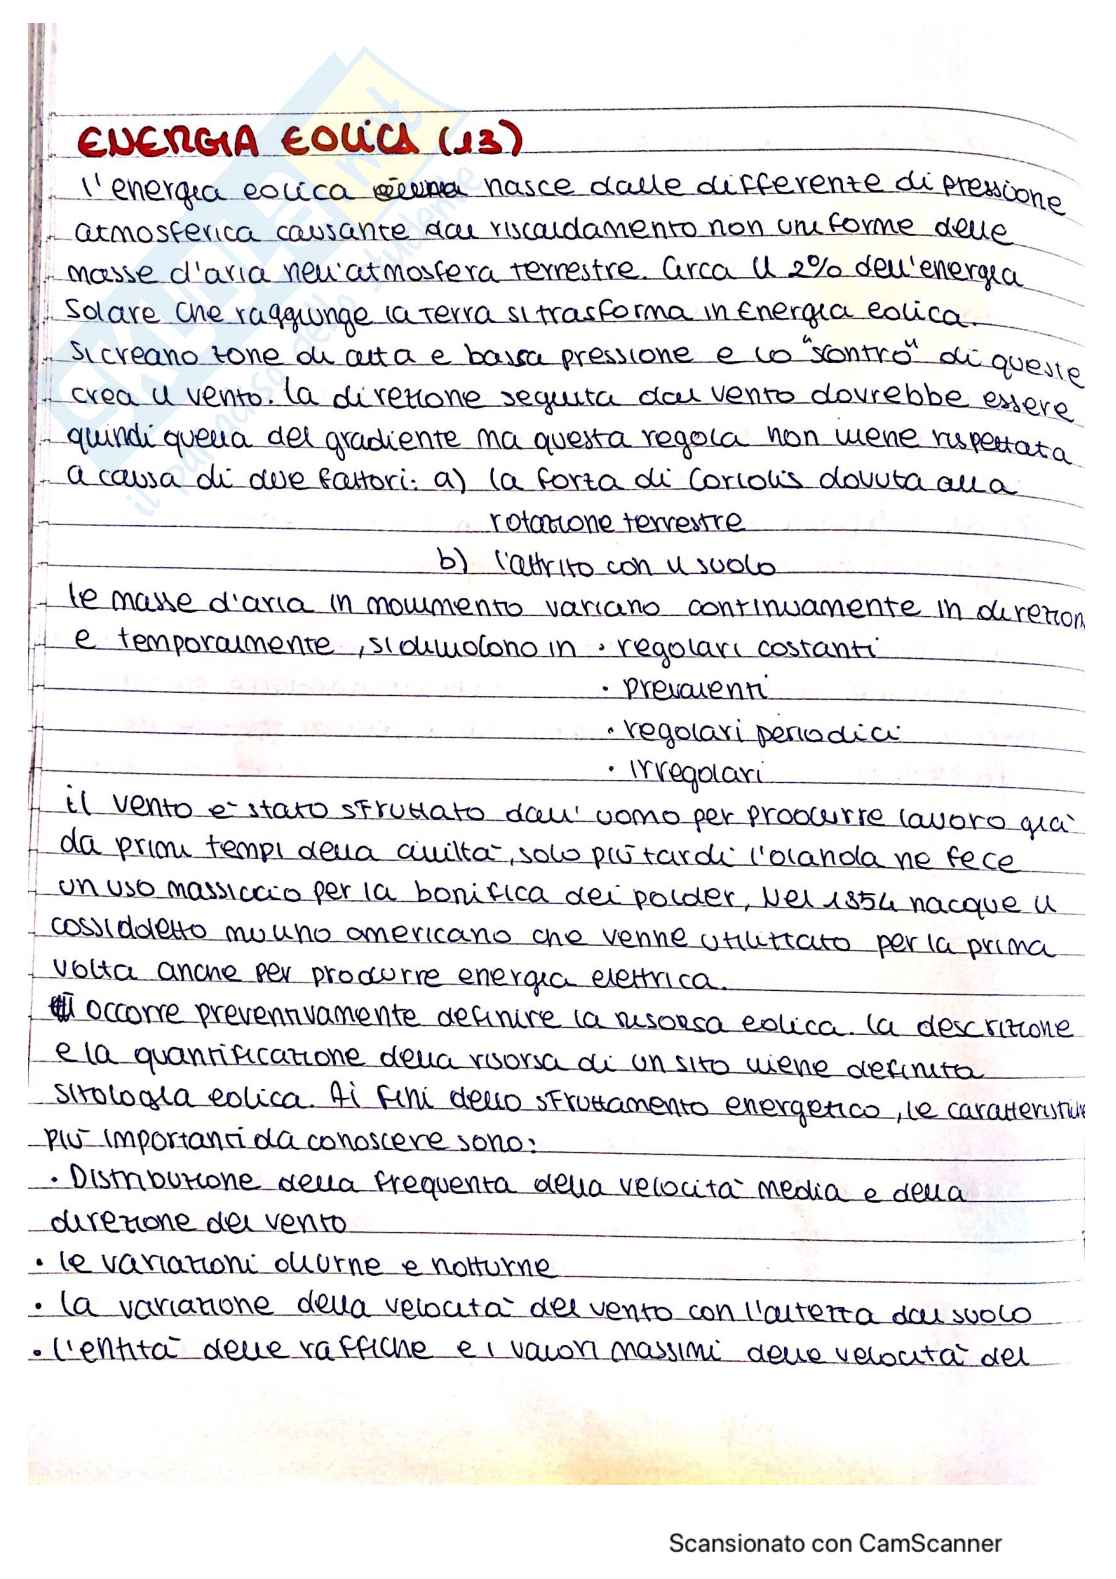 ENERGIA EOLICA (13)
l'energia eolica nasce dalle differente di pressione
atmosferica causante dal riscaldamento non uniforme delle
masse d'aria nell'atmosfera terrestre. Circa il 2% dell'energia
solare che raggiunge la terra si trasforma in Energia eolica.
Si creano zone di alta e bassa pressione e lo "scontro" di queste
crea il vento. la direzione seguita dal vento dovrebbe essere
quindi quella del gradiente ma questa regola non viene rispettata
a causa di due fattori: a) la forza di Coriolis dovuta alla
rotazione terrestre
b) l'attrito con il suolo
le masse d'aria in movimento variano continuamente in direzion
e temporalmente, si dividono in • regolari costanti
• prevalenti
• regolari periodici
• irregolari
il vento è stato sfruttato dall'uomo per produrre lavoro già
da primi tempi della civiltà, solo più tardi l'olanda ne fece
un uso massiccio per la bonifica dei polder, Nel 1854 nacque il
cossiddetto mulino americano che venne utilizzato per la prima
volta anche per produrre energia elettrica.
occorre preventivamente definire la risorsa eolica. la descrizione
e la quantificazione della risorsa di un sito viene definita
sitologia eolica. Ai fini dello sfruttamento energetico, le caratteristiche
più importanti da conoscere sono:
• Distribuzione della frequenza della velocità media e della
direzione del vento
• le variazioni diurne e notturne
• la variazione della velocità del vento con l'altezza dal suolo
• l'entità delle raffiche e i valori massimi delle velocità del
Scansionato con CamScanner